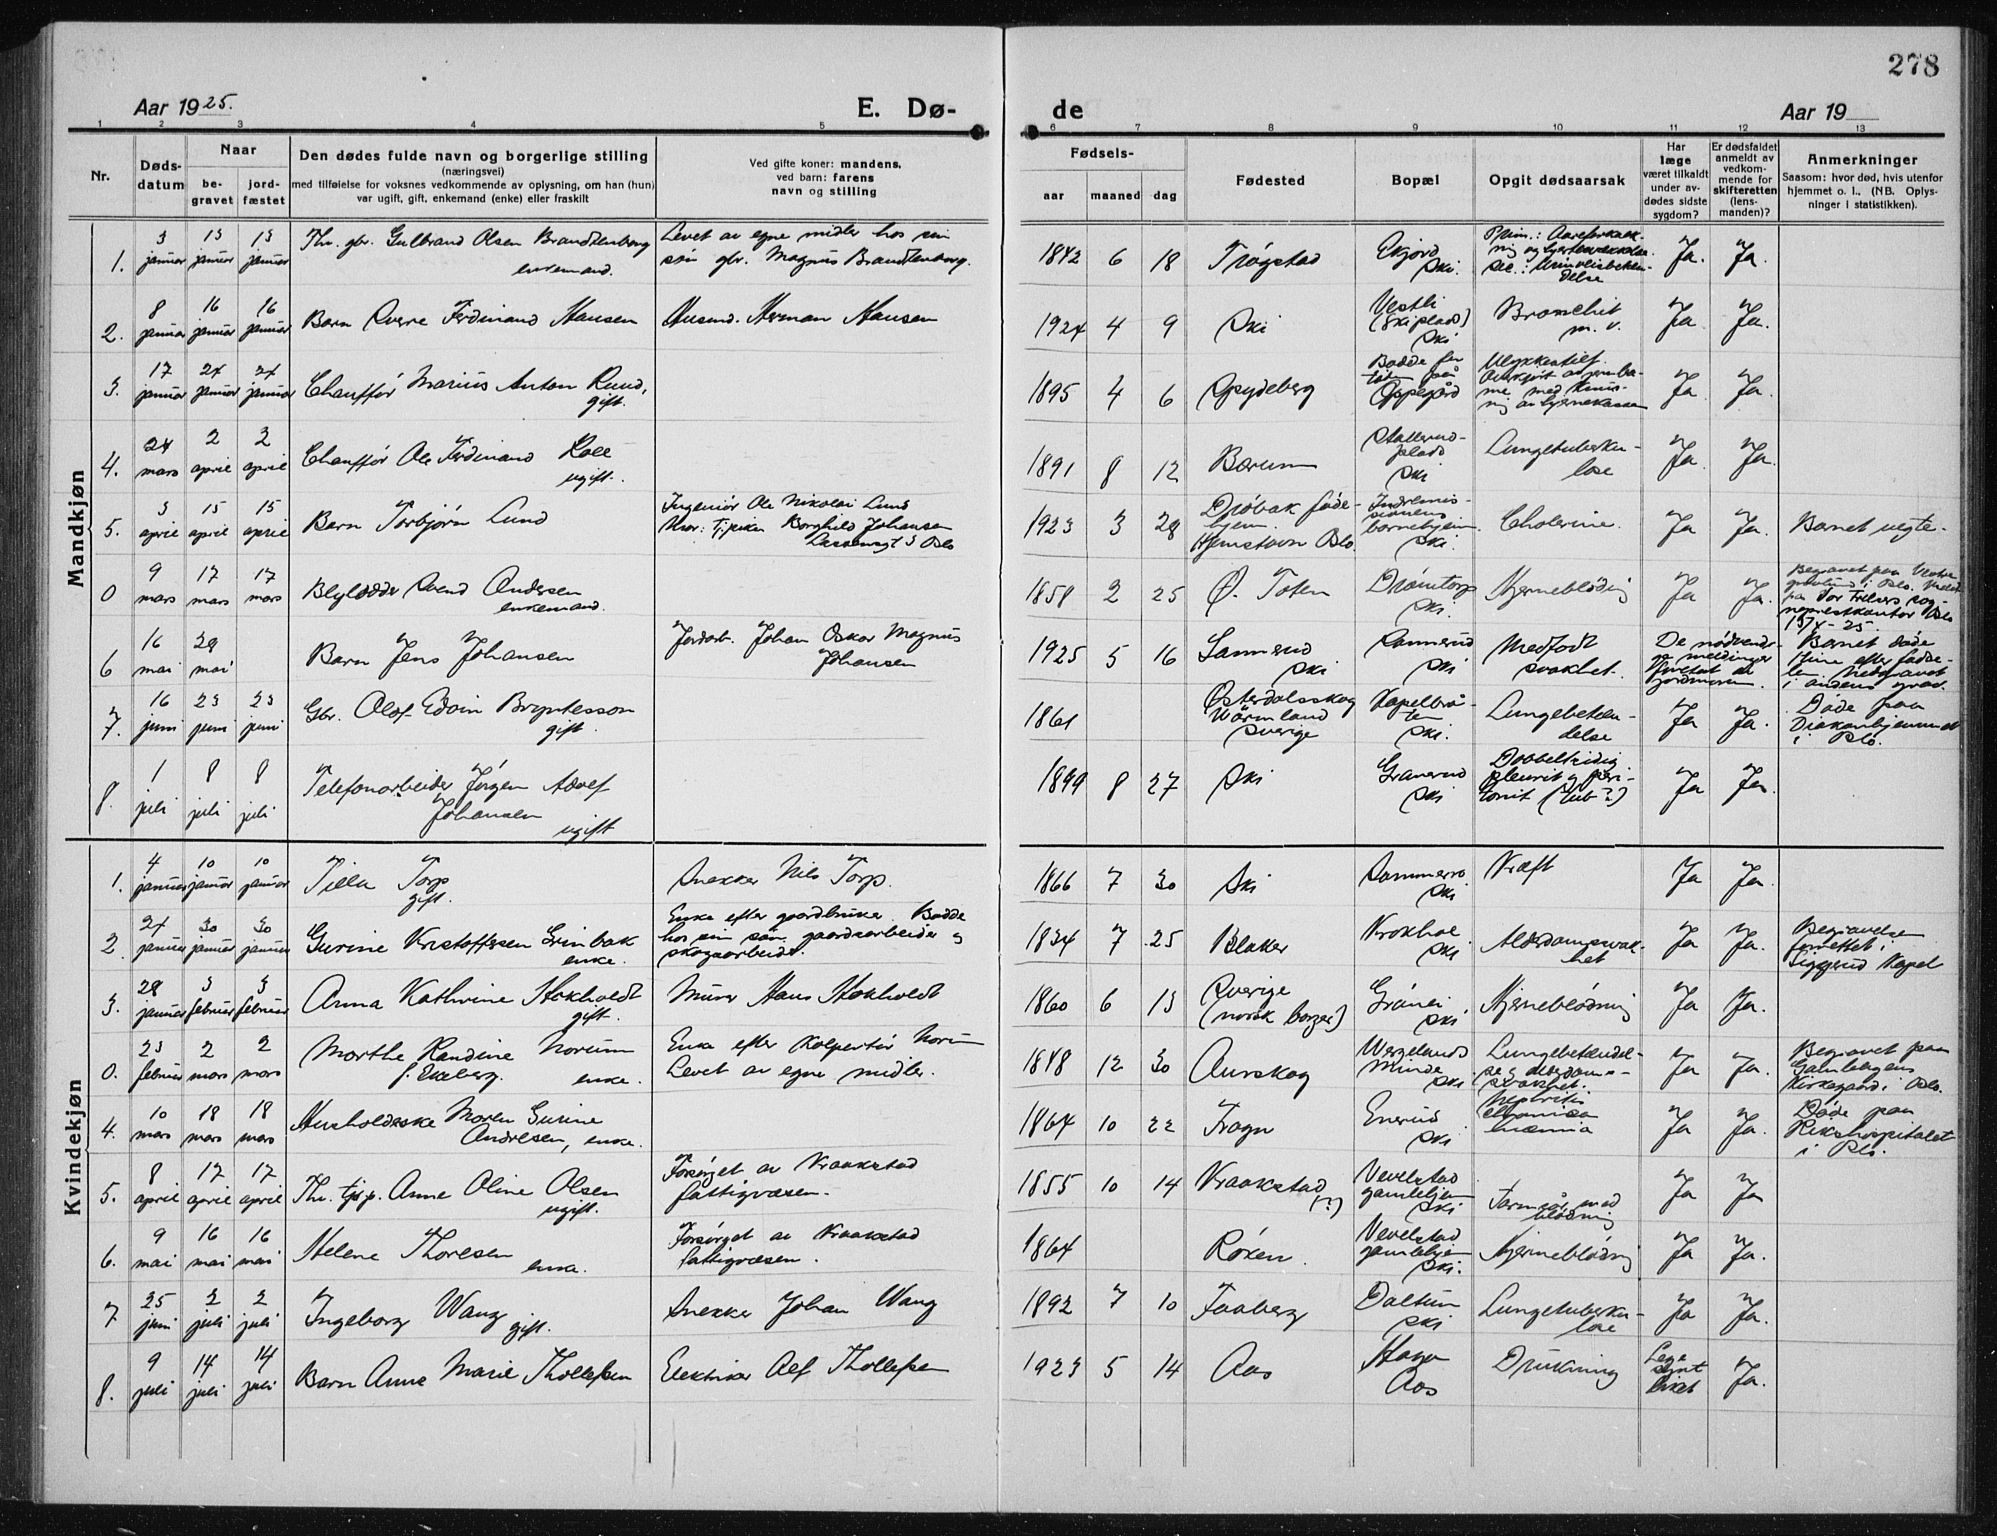 278
Aar 1925.
E. Dø-
de
Aar 19
1 2 3 4 5 6 7 8 9 10 11 12 13
Nr.
Døds-
datum
Naar
be-
gravet
jord-
fæstet
Den dødes fulde navn og borgerlige stilling
(næringsvei)
med tilføielse for voksnes vedkommende av oplysning, om han (hun)
var ugift, gift, enkemand (enke) eller fraskilt
Ved gifte koner: mandens,
ved barn: farens
navn og stilling
Fødsels-
aar maaned dag
Fødested
Bopæl
Opgit dødsaarsak
Har
læge
været tilkaldt
under av-
dødes sidste
sygdom?
Er dødsfaldet
anmeldt av
vedkom-
mende for
skifteretten
(lens-
manden)?
Anmerkninger
Saasom: hvor død, hvis utenfor
hjemmet o. l., (NB. Oplys-
ninger i statistikken).
Mandkjøn
1. 3 januar 13 januar 13 januar
Thv. gbr. Gulbrand Olsen Brandtenborg
enkemand.
Levet av egne midler hos sin
søn gbr. Magnus Brandtenborg.
1842 6 18 Trøgstad
Ekjord
Ski.
Ja. Ja.
2. 8 januar 16 januar 16 januar
Barn Sverre Ferdinand Hansen
Husmd. Herman Hansen
1924 4 9 Ski
Vestli
(Skiplads)
Ski
Bronchit
m. v.
Ja. Ja.
3. 17 januar 24 januar 24 januar
Chauffør Marius Anton Ruud,
gift.
1895 4 6 Spydeberg
Oppegård
Ulykkestilf.
Ja Ja.
4. 24 mars 2 april 2 april
Chauffør Ole Ferdinand
ugift.
1891 8 12 Bærum
Stallerud-
plads
Ski
Lungetuberku-
lose
Ja Ja.
5. 3 april 15 april 15 april
Barn Torbjørn Lund
Ingeniør Ole Nikolai Lund
Mor: Tjpike Borghild Johansen
1923 3 28
Drøbak føde-
hjem.
Hjemstavn Oslo.
Indremis-
sionens
barnehjem
Ski.
Cholerine.
Ja Ja.
Barnet uegte.
0 9 mars 17 mars 17 mars
Svend Andersen
enkemand.
1858 2 25 Ø. Toten
Drømtorp
Ski.
Hjerneblødnig
Ja Ja.
Begravet paa Vestre
gravlund i Oslo.
6 16 mai 28 mai
Barn Jens Johansen
Jordarb. Johan Oskar Magnus
Johansen
1925 5 16
Sannerud
Ski
Sannerud
Ski
Medfødt
svakhet.
De nødvendi-
ge meldinger
foretat av
jordmoren.
Barnet døde
7. 16 juni 23 juni 23 juni
Gbr. Olof Edvin Bryntesson
gift.
1861
Østerdalsskog
Wärmland
Sverige
Kapelbrå-
ten
Ski.
Lungebeten-
delse
Ja Ja.
Døde paa
Diakonhjemmet
i Oslo.
8. 1 juli 8 juli 8 juli
Telefonarbeider Jørgen Adolf
Johansen
ugift
1899 8 27 Ski
Granerud
Ski
Dobbeltsidig
pleurit og peri-
tonit (tub?)
Ja Ja.
Kvindekjøn
1. 4 januar 10 januar 10 januar
Tilla Torp
gift.
Snekker Nils Torp.
1866 7 30 Ski
Sommerro
Ski
Kræft
Ja Ja.
2. 24 januar 30 januar 30 januar
Gurine Kristoffersen Grinbak
enke.
Enke efter gaardbruker. Bodde
hos sin søn gaardsarbeider og
skogsarbeider.
1834 7 25 Blaker
Krokhol
Ski
Alderdomssvak-
het
Ja Ja.
Begravelse
forrettet i
Siggerud Kapel
3. 28 januar 3 februar 3 februar
Anna Kathrine Stokholdt
gift.
Murer Hans Stokholdt
1860 6 13
Sverige
(norsk borger)
Ski
Hjerneblødning
Ja Ja.
0. 23 februar 2 mars 2 mars
Marthe Randine Norum
f. Ekeberg. enke.
Enke efter Kolportør Norum
Levet av egne midler.
1848 12 30 Aurskog
Wergelands
Minde
Ski
Lungebetændel-
se og alderdoms-
svakhet.
Ja Ja.
Begravet paa
Gamlebyens
Kirkegaard i Oslo.
4. 10 mars 18 mars 18 mars
Husholderske Maren Gurine
Andresen, enke.
1864 10 22 Frogn
Enerud
Ski
Nephritis
chronica
uræmia
Ja Ja.
Døde paa
Rikshospitalet
i Oslo.
5. 8 april 17 april 17 april
Thv. tjp. Anne Oline Olsen
ugift.
Forsørget av Kraakstad
fattigvæsen.
1855 10 14 Kraakstad
(?)
Vevelstad
gamlehjem
Ski
Tarmsår med
blødning
Ja Ja
6. 9 mai 16 mai 16 mai
Helene Thoresen
enke.
Forsørget av Kraakstad
fattigvæsen.
1864 Røken.
Vevelstad
gamlehjem
Ski.
Hjerneblødnig
Ja Ja.
7 25 juni 2 juli 2 juli
Ingeborg Wang
gift.
Snekker Johan Wang
1892 7 10 Faaberg
Daltun
Ski
Lungetuberku-
lose
Ja Ja.
8. 9 juli 14 juli 14 juli
Barn Anne Marie Thollefsen
Elektriker Alf Thollefsen
1923 5 14 Aas
Haga
Aas
Drukning
Læge
synt
liket
Ja.